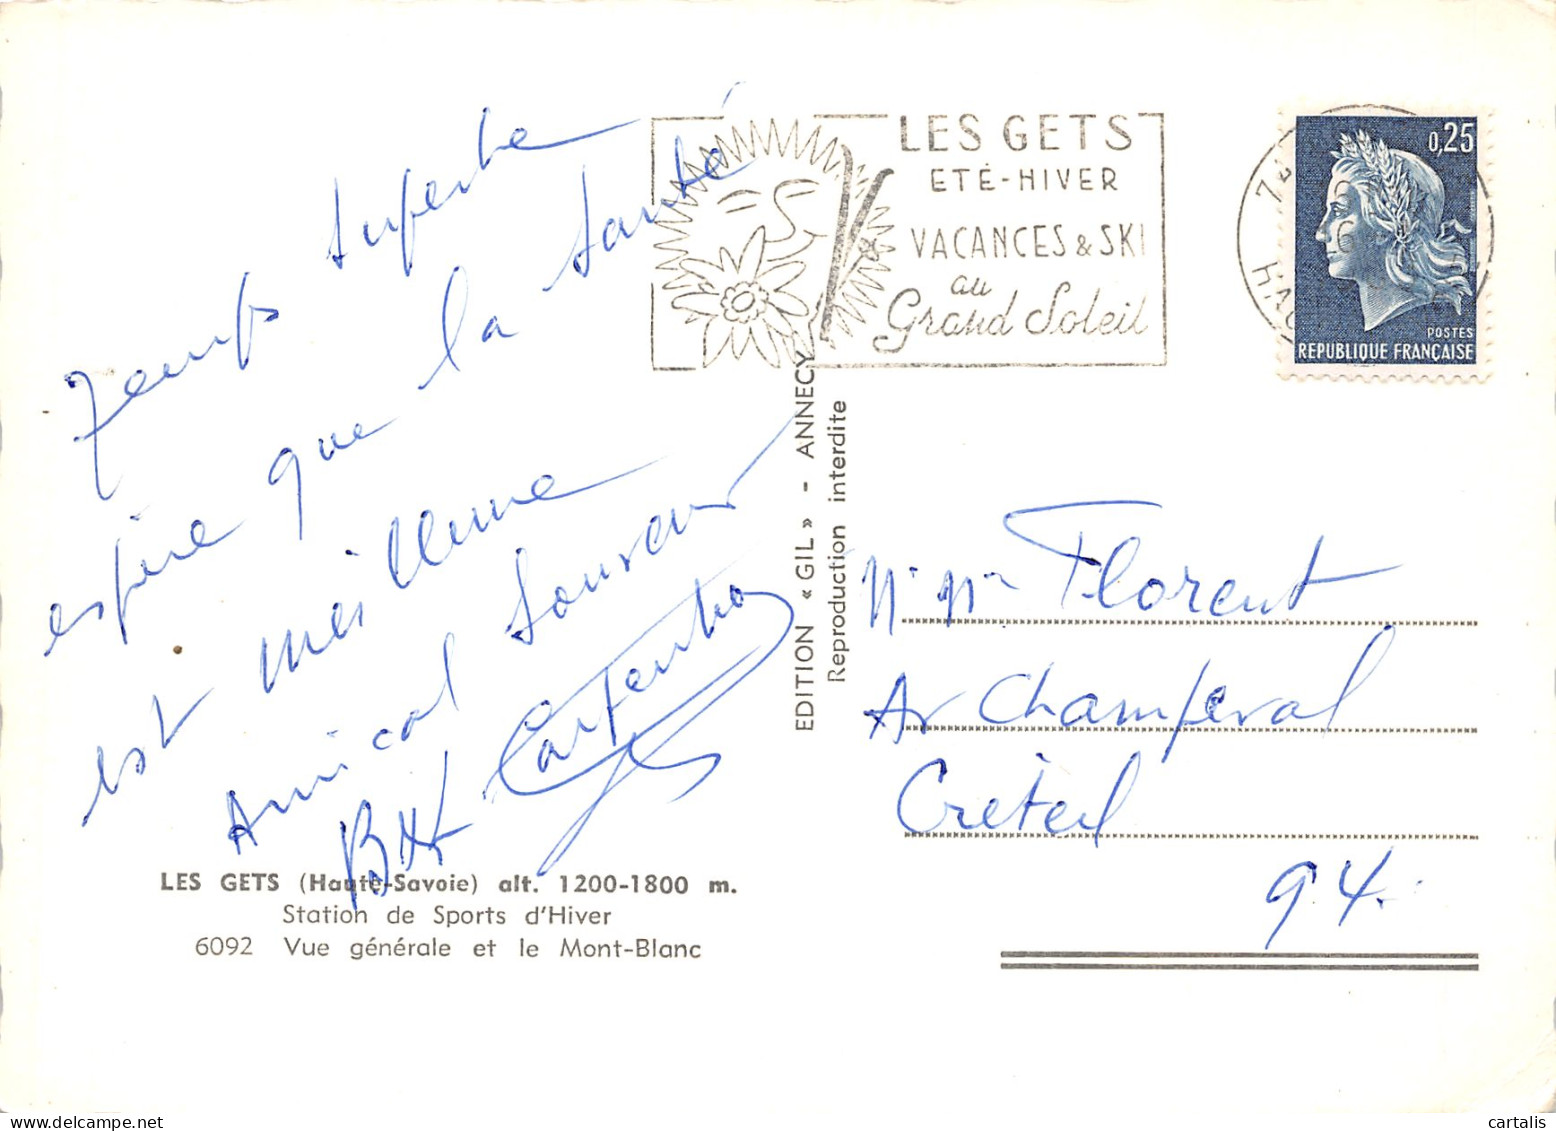 Temps superbe
espère que la santé
est meilleure
Amical Souvenir
LES GETS (Haute-Savoie) alt. 1200-1800 m.
Station de Sports d'Hiver
6092 Vue générale et le Mont-Blanc
EDITION « GIL » - ANNECY
Reproduction interdite
LES GETS
ETÉ-HIVER
VACANCES & SKI
au
Grand Soleil
0,25
POSTES
REPUBLIQUE FRANÇAISE
Florent
Av Champeval
Créteil
94.
cartalis